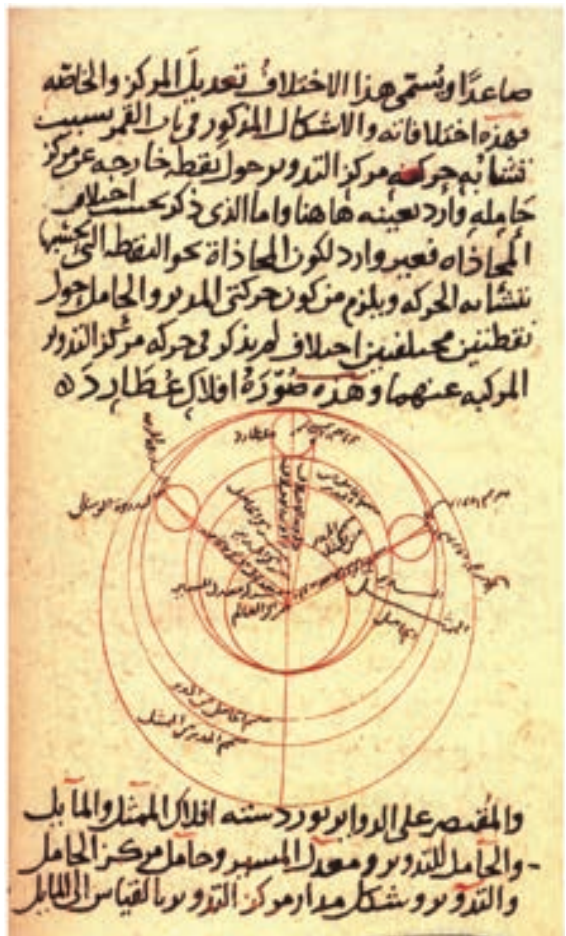 صاعدًا ويُسمّى هذا الاختلافُ تعديلَ المركز والخاصّه
فهذه اختلافاته والاشكال المذكور في باب القمر بسبب
تشابه حركه مركز التدوير حول نقطه خارجه عن مركز
حامله وارد بعينه هاهنا واما الذى ذكر بحسب اختلاف
المحاذاه فغير وارد لكون المحاذاة نحو النقطه التى بحسبها
تتشابه الحركه ويلزم من كون حركتى المدير والحامل حول
نقطتين مختلفتين اختلاف لم يذكر فى حركه مركز التدوير
المركبه عنهما وهذه صُوّرَةُ افلاك عُطَارِد
عطارد
مركز الحامل
معدل المسير
مركز العالم
الحامل
متمم الحامل من المدير
متمم المدير من الممثل
والمقتصر على الدواير يورد سته افلاك الممثل والمايل
والحامل للتدوير ومعدل المسير وحامل مركز الحامل
والتدوير وشكل مدار مركز التدوير بالقياس الى المايل